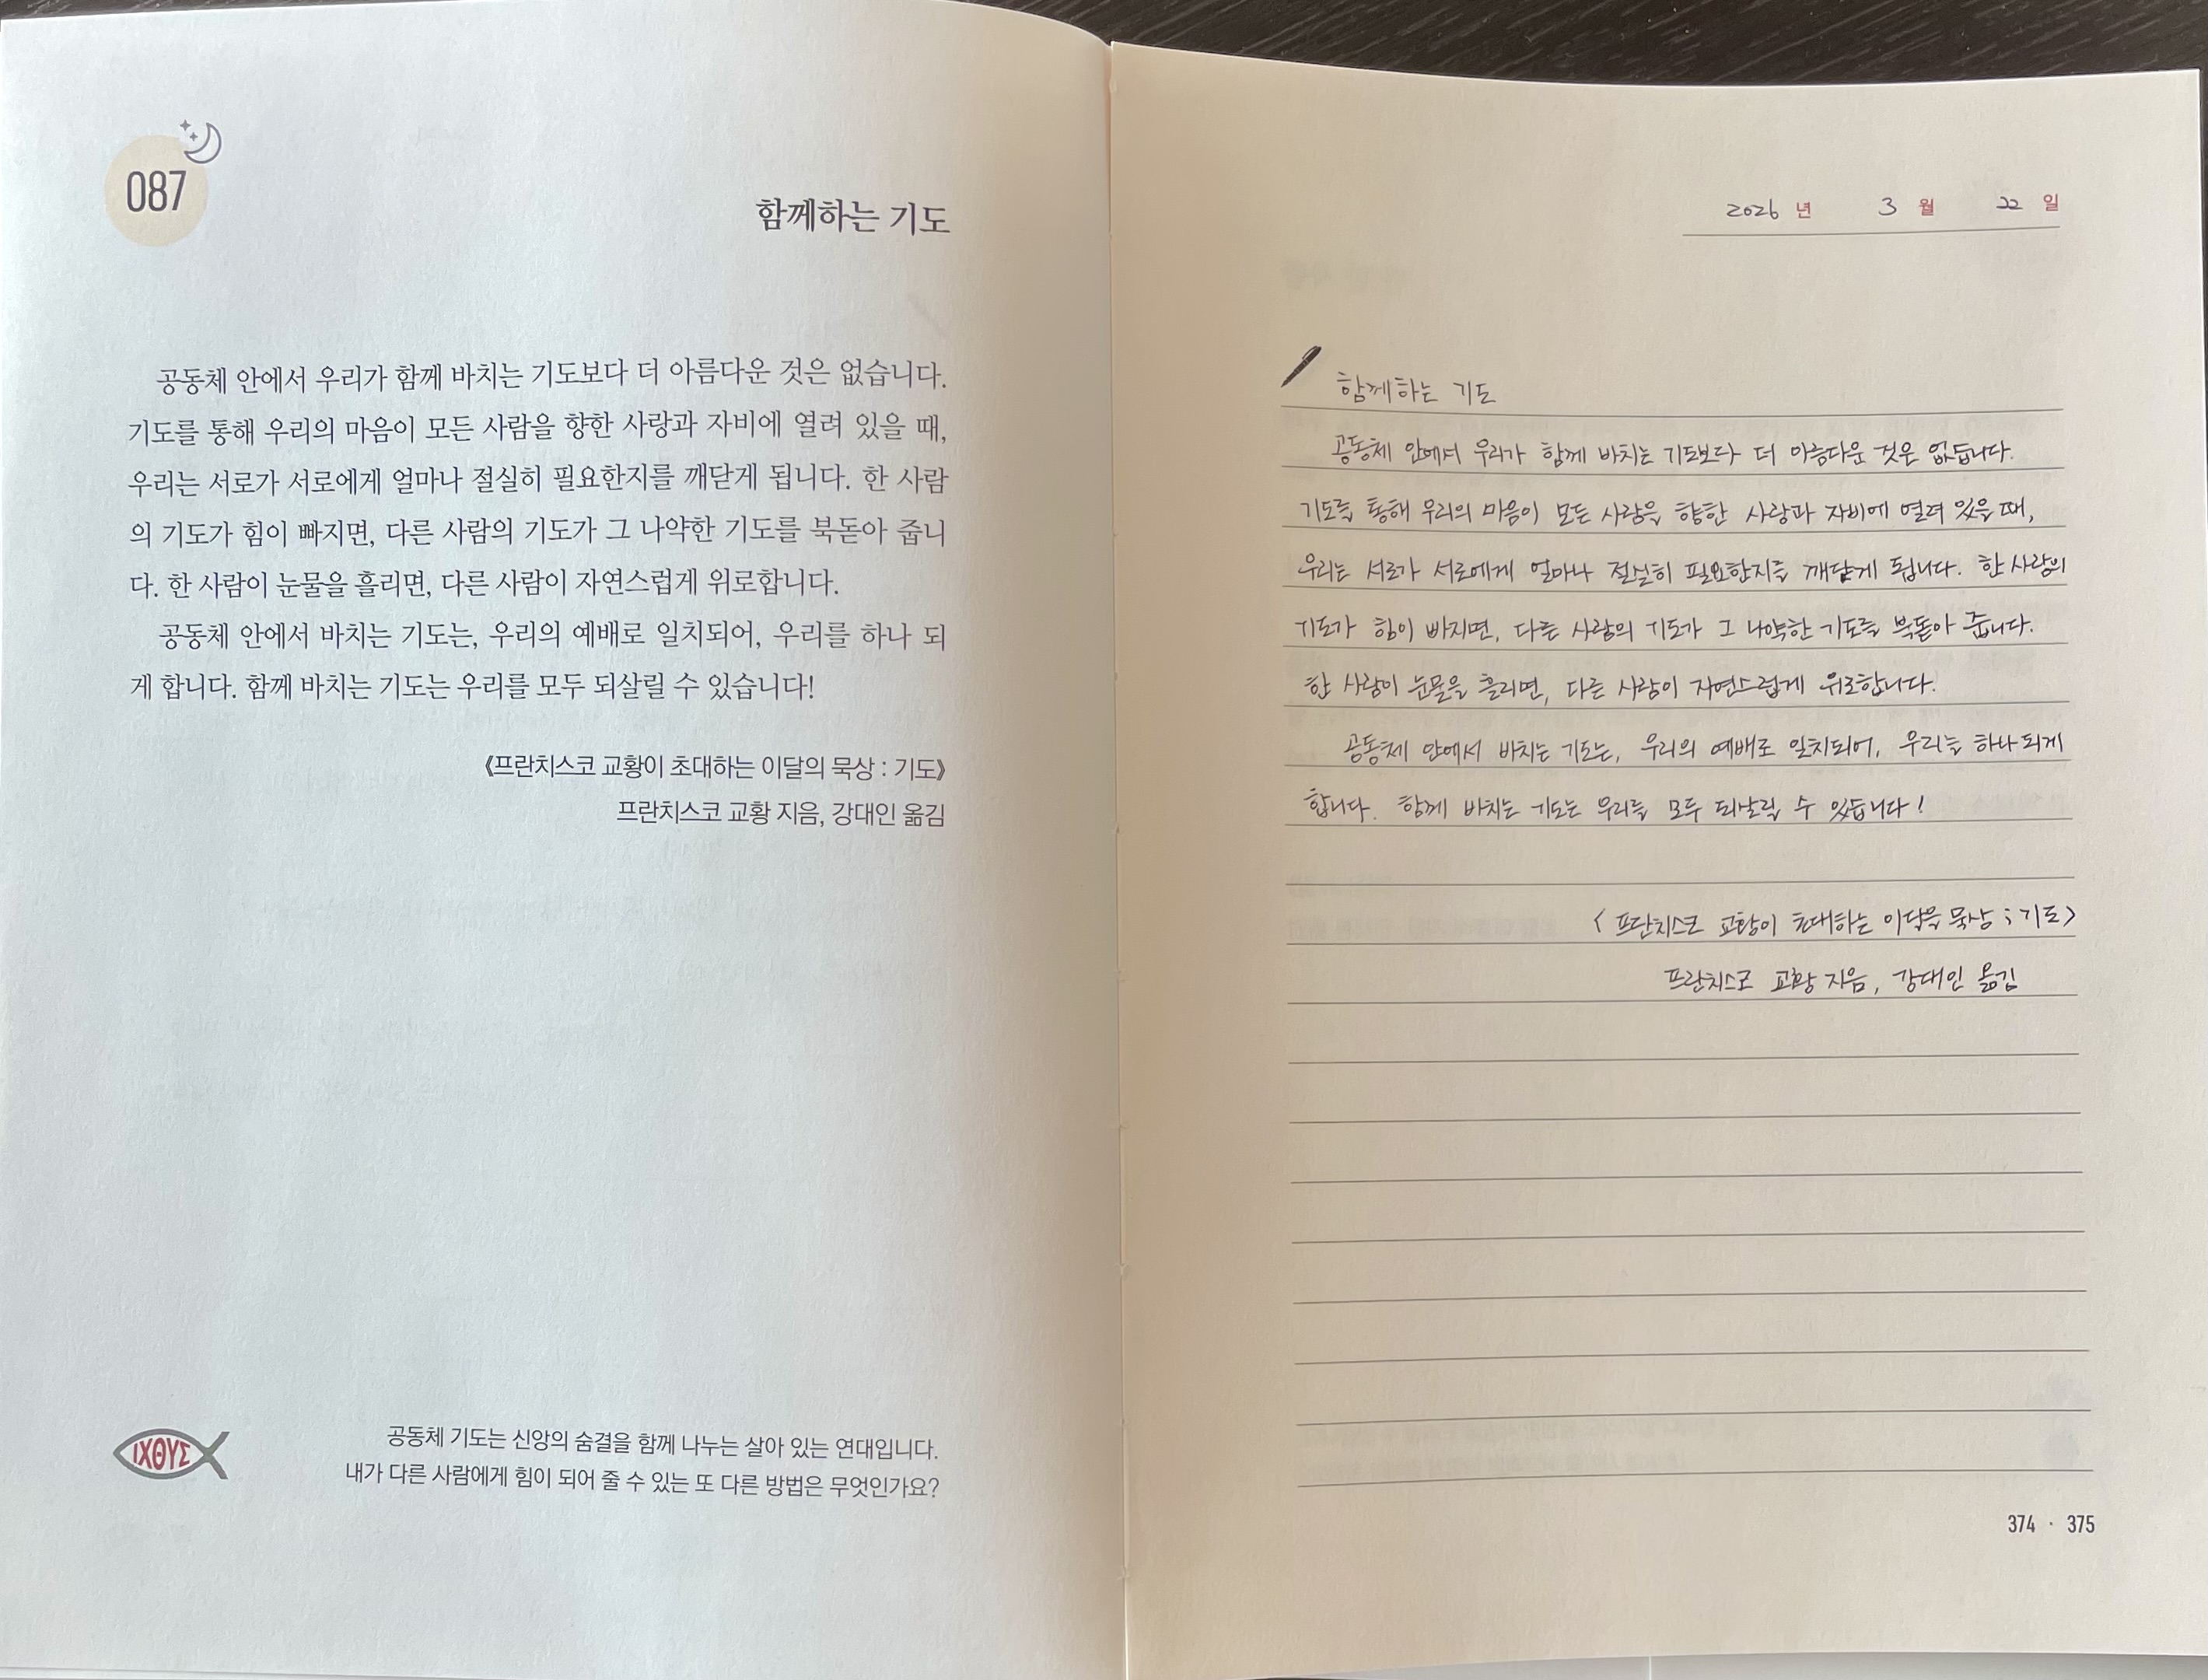 087
함께하는 기도
공동체 안에서 우리가 함께 바치는 기도보다 더 아름다운 것은 없습니다.
기도를 통해 우리의 마음이 모든 사람을 향한 사랑과 자비에 열려 있을 때,
우리는 서로가 서로에게 얼마나 절실히 필요한지를 깨닫게 됩니다. 한 사람
의 기도가 힘이 빠지면, 다른 사람의 기도가 그 나약한 기도를 북돋아 줍니
다. 한 사람이 눈물을 흘리면, 다른 사람이 자연스럽게 위로합니다.
공동체 안에서 바치는 기도는, 우리의 예배로 일치되어, 우리를 하나 되
게 합니다. 함께 바치는 기도는 우리를 모두 되살릴 수 있습니다!
《프란치스코 교황이 초대하는 이달의 묵상 : 기도》
프란치스코 교황 지음, 강대인 옮김
ΙΧΘΥΣ
공동체 기도는 신앙의 숨결을 함께 나누는 살아 있는 연대입니다.
내가 다른 사람에게 힘이 되어 줄 수 있는 또 다른 방법은 무엇인가요?
2026 년 3 월 22 일
함께하는 기도
공동체 안에서 우리가 함께 바치는 기도보다 더 아름다운 것은 없습니다.
기도를 통해 우리의 마음이 모든 사람을 향한 사랑과 자비에 열려 있을 때,
우리는 서로가 서로에게 얼마나 절실히 필요한지를 깨닫게 됩니다. 한 사람의
기도가 힘이 빠지면, 다른 사람의 기도가 그 나약한 기도를 북돋아 줍니다.
한 사람이 눈물을 흘리면, 다른 사람이 자연스럽게 위로합니다.
공동체 안에서 바치는 기도는, 우리의 예배로 일치되어, 우리를 하나 되게
합니다. 함께 바치는 기도는 우리를 모두 되살릴 수 있습니다!
<프란치스코 교황이 초대하는 이달을 묵상 ; 기도>
프란치스코 교황 지음, 강대인 옮김
374 · 375